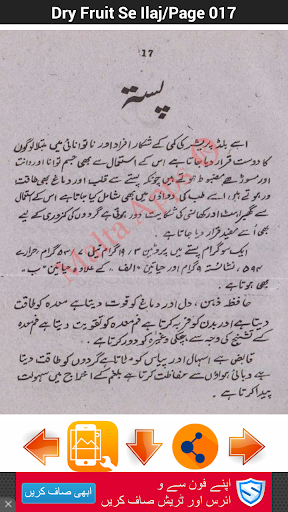 Dry Fruit Se Ilaj/Page 017
17
پستہ
اسے بلڈ پریشر کی کمی کے شکار افراد اور ناتوانائی میں مبتلا لوگوں
کا دوست قرار دیا جاتا ہے اس کے استعمال سے بھی جسم توانا اور دانت
اور مسوڑھے مضبوط ہوتے ہیں چونکہ پستے سے قلب اور دماغ بھی طاقت
ور ہوتے ہیں اسے طب کی دواؤں میں بھی شامل کیا جاتا ہے اس کے استعمال
سے گھبراہٹ اور کھانسی کی شکایت دور ہوتی ہے گردوں کی کمزوری کے لیے
بھی اسے مفید قرار دیا جاتا ہے۔
ایک سو گرام پستے میں پروٹین ۱۹/۳ گرام تیل ۵۳/۷ گرام، حرارے
۵۹۴، نشاستہ ۱۹ گرام اور حیاتین "الف" کے علاوہ حیاتین "ب"
بھی ہوتا ہے۔
حافظہ، ذہن، دل اور دماغ کو قوت دیتا ہے معدہ کو طاقت
دیتا ہے اور بدن کو فربہ کرتا ہے فم معدہ کو تقویت دیتا ہے فم معدہ
کے تشنج کی وجہ سے ہچکی وغیرہ کو دور کرتا ہے۔
قابض ہے اسہال اور پیاس کو مٹاتا ہے گردوں کو طاقت دیتا
ہے وبائی ہواؤں سے حفاظت کرتا ہے بلغم کے اخراج میں سہولت
پیدا کرتا ہے۔
Malta Apps
اپنے فون سے و
ائرس اور ٹریش صاف کریں
ابھی صاف کریں